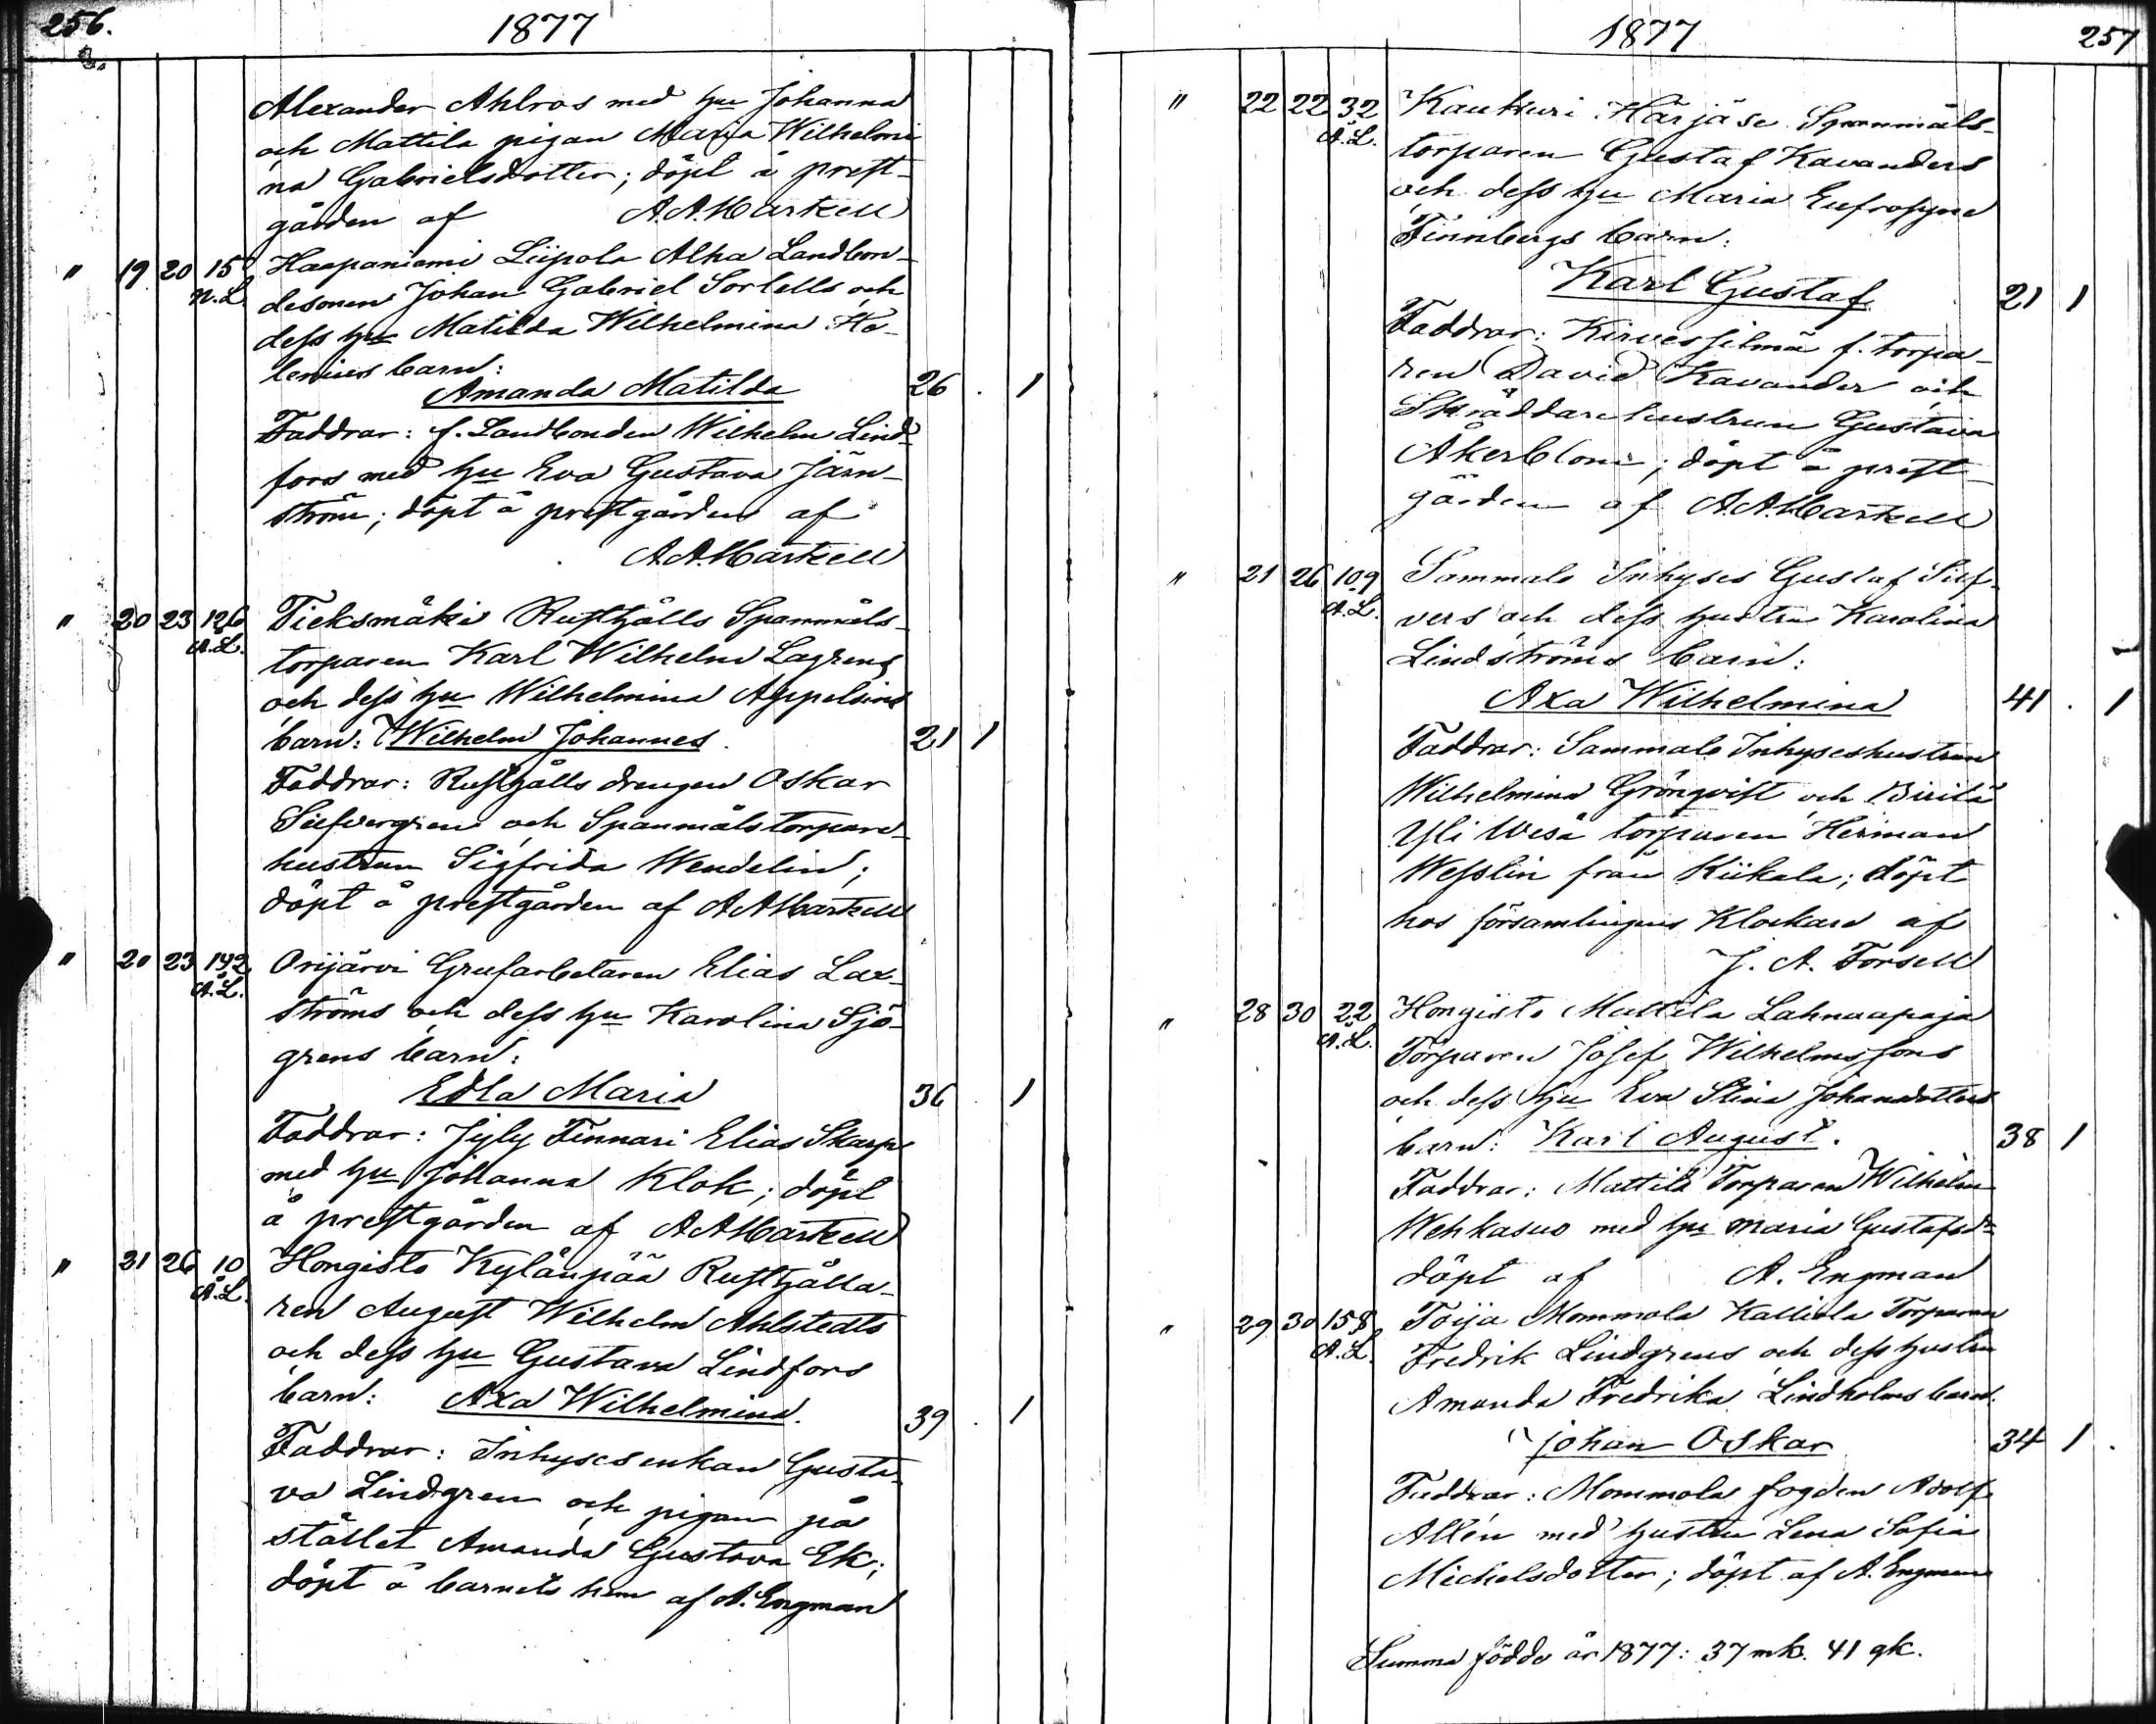 256.
1877
Alexander Ahlros med hu Johanna
och Mattila pigan Maria Wilhelmi
na Gabrielsdotter; döpt å prest-
gården af A.A. Markell
" 19 20 15 Haapaniemi Liipola Alha Landbon-
N.L. desonen Johan Gabriel Sorlells och
dess hu Matilda Wilhelmina He-
lenius barn:
Amanda Matilda 26 . 1
Faddrar: f. Landbonden Wilhelm Lind-
fors med hu Eva Gustava Järn-
ström; döpt å prestgården af
A.A. Markell
" 20 23 126 Tieksmäki Rusthålls Spanmåls-
A.L. torparen Karl Wilhelm Lagrens
och dess hu Wilhelmina Appelins
barn: Wilhelm Johannes. 21 1
Faddrar: Rusthålls drengen Oskar
Siefvergren och Spanmåls torpare-
hustrun Sigfrida Wendelin;
döpt å prestgården af A A Markell
" 20 23 142 Orijärvi Grufarbetaren Elias Lax-
A.L. ströms och dess hu Karolina Sjö-
grens barn:
Edla Maria 36 1
Faddrar: Jyly Finnari Elias Skarp
med hu Johanna Klok; döpt
å prestgården af A A Markell
" 21 26 10 Hongisto Kylänpää Rusthålla-
A.L. ren August Wilhelm Ahlstedts
och dess hu Gustava Lindfors
barn: Axa Wilhelmina. 39 . 1
Faddrar: Inhyses enkan Gusta-
va Lindgren och pigan på
stället Amanda Gustava Ek;
döpt å barnets hem af A. Engman
1877
257
" 22 22 32 Kaukuri Härjäse Spanmåls-
A.L. torparen Gustaf Kavanders
och dess hu Maria Eufrosyne
Finnbergs barn:
Karl Gustaf 21 1
Faddrar: Kirvessilmä f. torpa-
ren David Kavander och
Skräddarehustrun Gustava
Åkerblom; döpt å prest-
gården af A.A. Markell
" 21 26 109 Sammalo Inhyses Gustaf Sief-
A.L. vers och dess hustru Karolina
Lindströms barn:
Axa Wilhelmina 41 . 1
Faddrar: Sammalo Inhyseshustrun
Wilhelmina Grönqvist och Birilä
Yli Wesa torparen Herman
Wesslin från Kiikala; döpt
hos församlingens Klockare af
J. A. Forsell
" 28 30 22 Hongisto Mattila Lahnaapaja
A.L. Torparen Josef Wilhelmssons
och dess hu Eva Stina Johansdotters
barn: Karl August. 38 1
Faddrar: Mattila Torparen Wilhelm
Wehkasuo med hu Maria Gustafsd-
döpt af A. Engman
" 29 30 158 Toija Mommola Kalliola Torparen
A.L. Fredrik Lindgrens och dess hustru
Amanda Fredrika Lindholms barn:
Johan Oskar 34 1 .
Faddrar: Mommola fogden Adolf
Allén med hustru Lena Sofia
Michelsdotter; döpt af A. Engman
Summa födde år 1877: 37 mk. 41 qk.